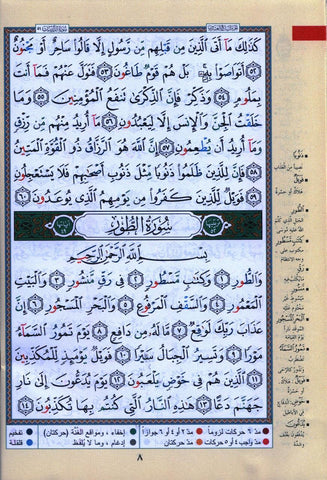 كَذَٰلِكَ مَا أَتَى الَّذِينَ مِن قَبْلِهِم مِّن رَّسُولٍ إِلَّا قَالُوا سَاحِرٌ أَوْ مَجْنُونٌ
﴿٥٢﴾ أَتَوَاصَوْا بِهِ ۚ بَلْ هُمْ قَوْمٌ طَاغُونَ ﴿٥٣﴾ فَتَوَلَّ عَنْهُمْ فَمَا أَنتَ
بِمَلُومٍ ﴿٥٤﴾ وَذَكِّرْ فَإِنَّ الذِّكْرَىٰ تَنفَعُ الْمُؤْمِنِينَ ﴿٥٥﴾ وَمَا
خَلَقْتُ الْجِنَّ وَالْإِنسَ إِلَّا لِيَعْبُدُونِ ﴿٥٦﴾ مَا أُرِيدُ مِنْهُم مِّن رِّزْقٍ
وَمَا أُرِيدُ أَن يُطْعِمُونِ ﴿٥٧﴾ إِنَّ اللَّهَ هُوَ الرَّزَّاقُ ذُو الْقُوَّةِ الْمَتِينُ
﴿٥٨﴾ فَإِنَّ لِلَّذِينَ ظَلَمُوا ذَنُوبًا مِّثْلَ ذَنُوبِ أَصْحَابِهِمْ فَلَا يَسْتَعْجِلُونِ
﴿٥٩﴾ فَوَيْلٌ لِّلَّذِينَ كَفَرُوا مِن يَوْمِهِمُ الَّذِي يُوعَدُونَ ﴿٦٠﴾
سُورَةُ الطُّورِ
بِسْمِ اللَّهِ الرَّحْمَٰنِ الرَّحِيمِ
وَالطُّورِ ﴿١﴾ وَكِتَابٍ مَّسْطُورٍ ﴿٢﴾ فِي رَقٍّ مَّنشُورٍ ﴿٣﴾ وَالْبَيْتِ
الْمَعْمُورِ ﴿٤﴾ وَالسَّقْفِ الْمَرْفُوعِ ﴿٥﴾ وَالْبَحْرِ الْمَسْجُورِ ﴿٦﴾ إِنَّ
عَذَابَ رَبِّكَ لَوَاقِعٌ ﴿٧﴾ مَّا لَهُ مِن دَافِعٍ ﴿٨﴾ يَوْمَ تَمُورُ السَّمَاءُ
مَوْرًا ﴿٩﴾ وَتَسِيرُ الْجِبَالُ سَيْرًا ﴿١٠﴾ فَوَيْلٌ يَوْمَئِذٍ لِّلْمُكَذِّبِينَ
﴿١١﴾ الَّذِينَ هُمْ فِي خَوْضٍ يَلْعَبُونَ ﴿١٢﴾ يَوْمَ يُدَعُّونَ إِلَىٰ نَارِ
جَهَنَّمَ دَعًّا ﴿١٣﴾ هَٰذِهِ النَّارُ الَّتِي كُنتُم بِهَا تُكَذِّبُونَ ﴿١٤﴾
ذَنُوبًا
نصيبا من العذاب
فَوَيْلٌ
هلاك
الطُّورِ
كِتَابٍ مَّسْطُورٍ
الْبَحْرِ الْمَسْجُورِ
تَمُورُ السَّمَاءُ
فَوَيْلٌ
خَوْضٍ
يُدَعُّونَ
مدّ ٦ حركات لزوماً مدّ ٢ أو ٤ أو ٦ جوازاً إخفاء، ومواقع الغنّة (حركتان) تفخيم
مدّ واجب ٤ أو ٥ حركات مدّ حركتان إدغام، وما لا يُلفظ قلقلة
٨